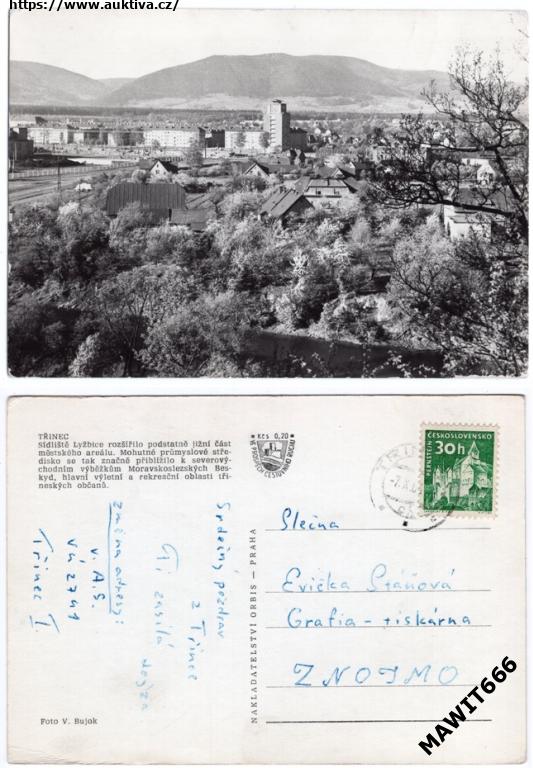 https://www.auktiva.cz/
TŘINEC
Sídliště Lyžbice rozšířilo podstatně jižní část
městského areálu. Mohutné průmyslové stře-
disko se tak značně přiblížilo k severový-
chodním výběžkům Moravskoslezských Bes-
kyd, hlavní výletní a rekreační oblasti tři-
neských občanů.
Kčs 0,20
ČESKOSLOVENSKO
30h
PERNŠTEJN
Srdečný pozdrav
z Třince
Ti zasílá
Změna adresy:
v. A. S.
VÚ 2741
Třinec I
NAKLADATELSTVÍ ORBIS — PRAHA
Slečna
Evička
Grafia - tiskárna
ZNOJMO
Foto V. Bujok
MAWIT666